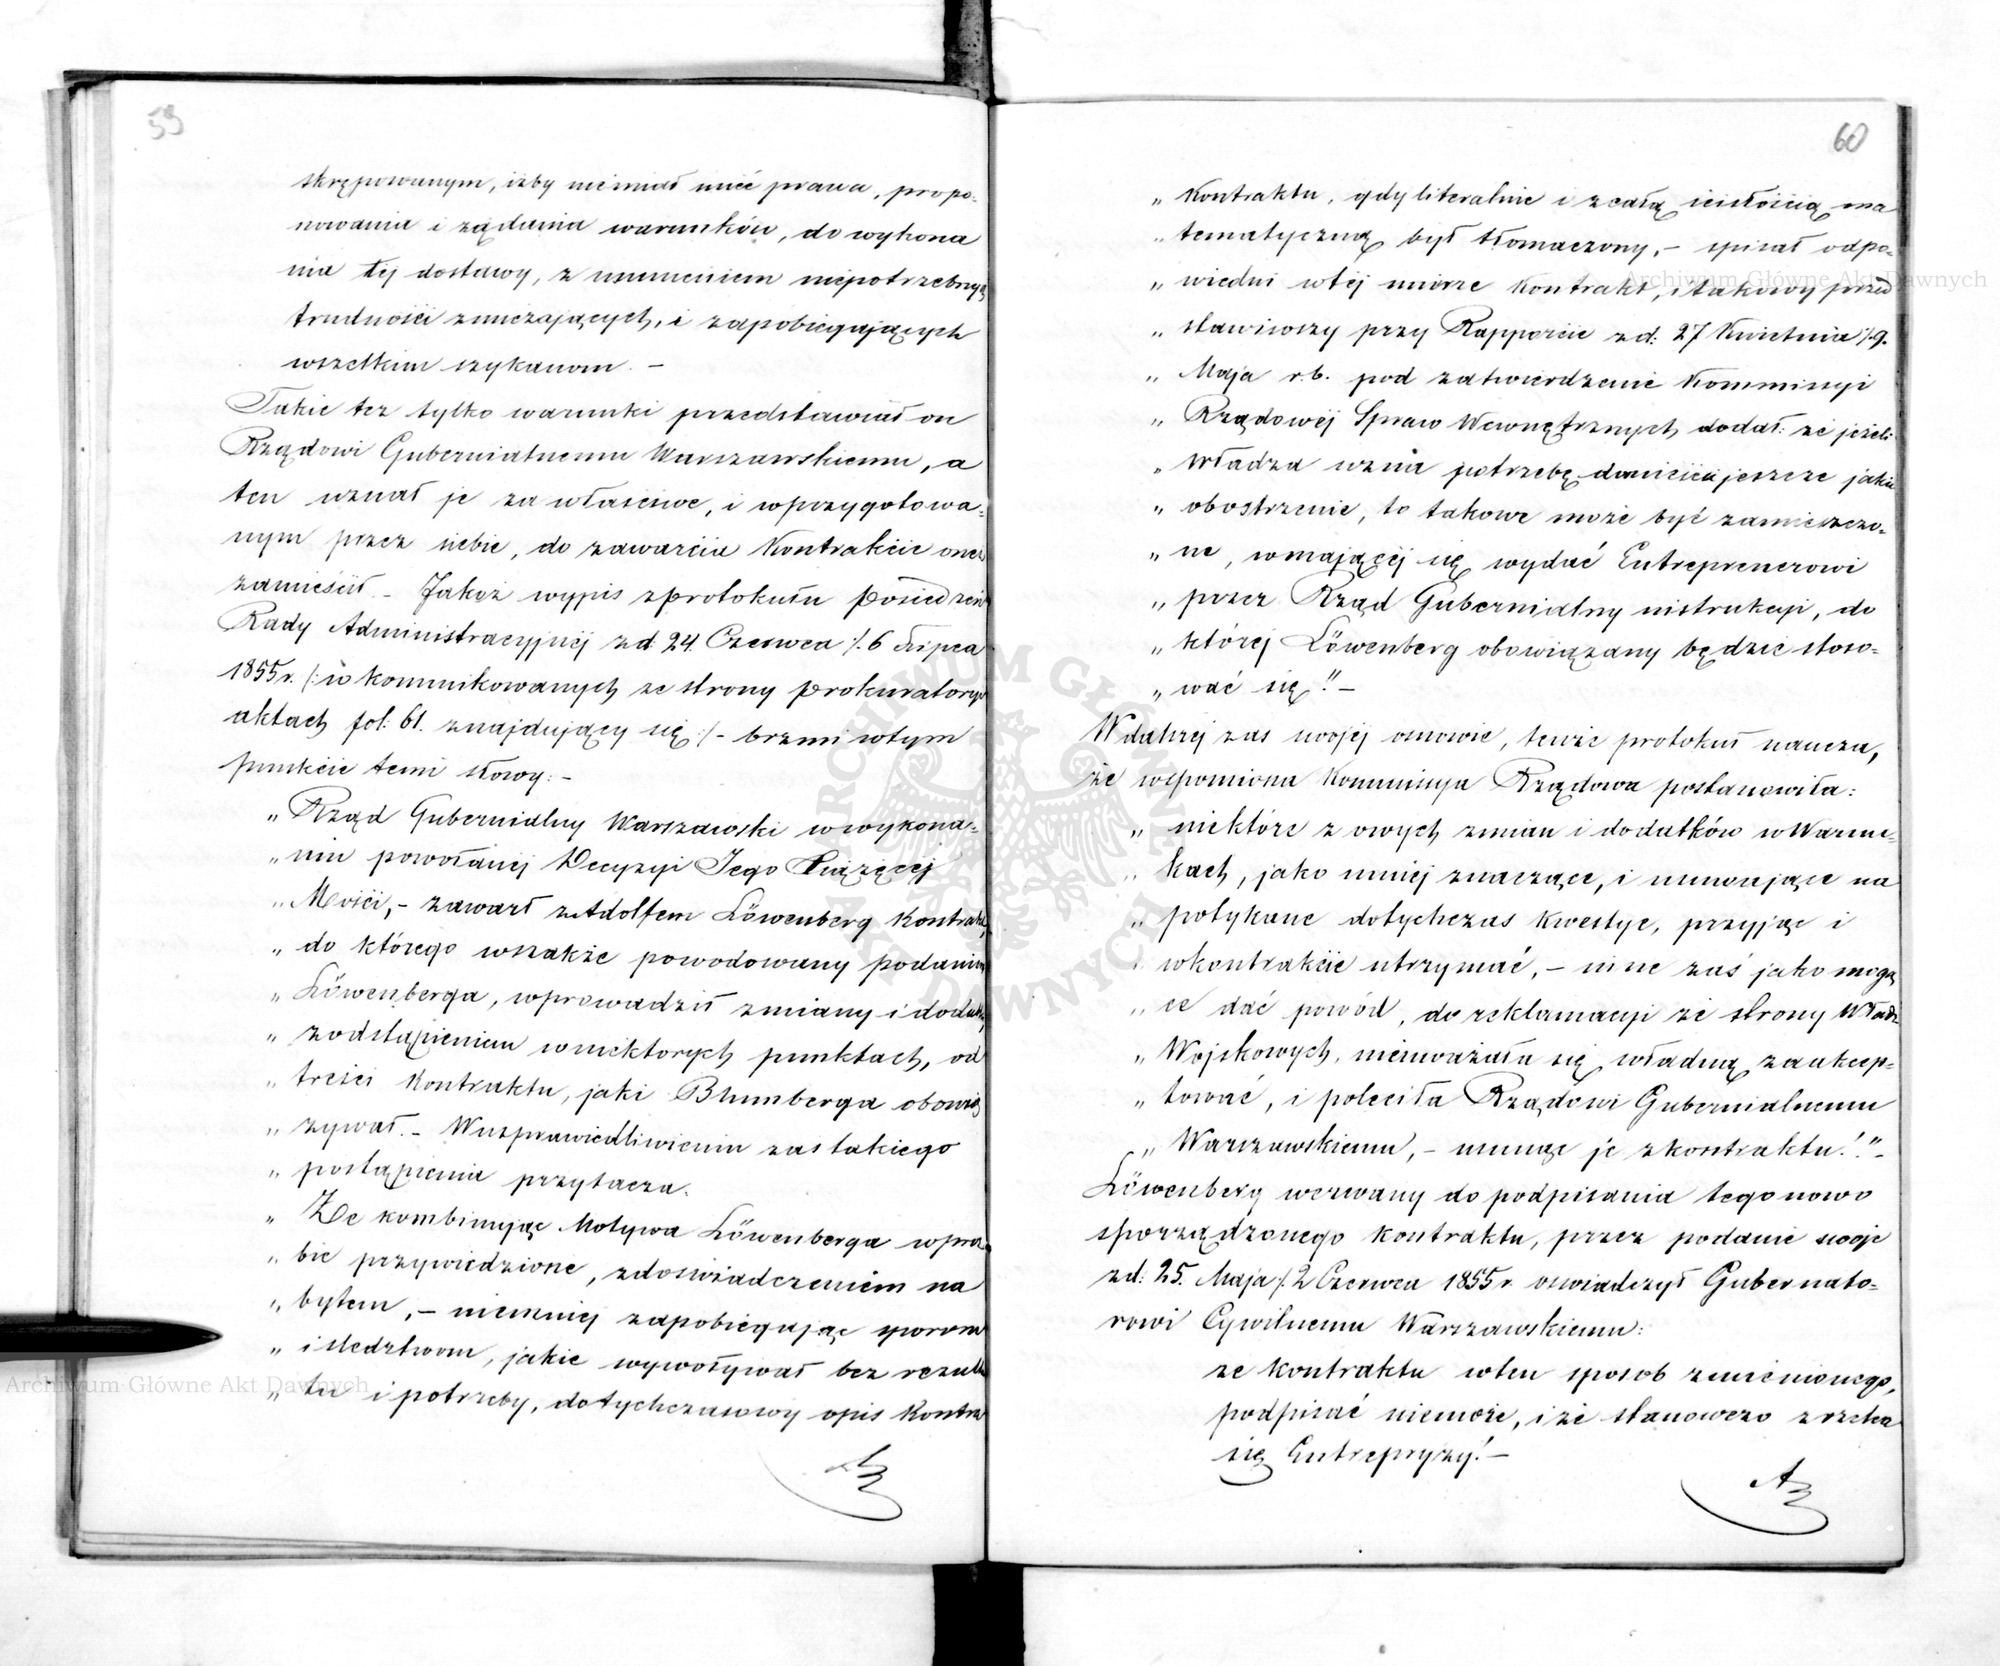 59
skrępowanym, iżby niemiał mieć prawa, propo-
nowania i żądania warunków, do wykona
nia tej dostawy, z usunieniem niepotrzebnych
trudności zmierzających, i zapobiegających
wszelkim szykanom. –
Takie tez tylko warunki przedstawiał on
Rządowi Gubernialnemu Warszawskiemu, a
ten uznał je za właściwe, i wprzygotowa-
nym przez siebie, do zawarcia Kontrakcie one
zamieścił. – Jakoż wypis zprotokułu Posiedzeń
Rady Administracyjnéj z d. 24 Czerwca /. 6 Lipca
1855 r. /: w kommunikowanych ze strony Prokuratoryi
aktach fol: 61. znajdujący się :/ – brzmi wtym
punkcie temi słowy: –
„ Rząd Gubernialny Warszawski w wykona-
„ niu powołanéj Decyzyi Jego Xiążęcej
„ Mości, – zawarł z Adolfem Löwenberg Kontrakt,
„ do którego wszakże powodowany podaniem
„ Löwenberga, wprowadził zmiany i dodatki
„ zodstąpieniem wniektorych punktach, od
„ treści Kontraktu, jaki Blumberga obowią
„ zywał. – Wusprawiedliwieniu zas takiego
„ postąpienia przytacza.
„ Że kombinując Motywa Löwenberga wproś
„ bie przywiedzione, zdoswiadczeniem na
„ bytem, – niemniej zapobiegając sporom
„ i sledztwom, jakie wywoływał bez rezulta
„ tu i potrzeby, dotychczasowy opis Kontra
60
„ Kontraktu, gdy literalnie i zcałą scisłością ma
„ tematyczną był tłomaczony, – spisał odpo-
„ wiedni wtéj mierze Kontrakt, i takowy przed
„ stawiwszy przy Rapporcie z d: 27 Kwietnia /. 9.
„ Maja r. b. pod zatwierdzenie Kommissyi
„ Rządowéj Spraw Wewnętrznych, dodał: że jeżeli
„ Władza uzna potrzebę danieścia jeszcze jakie
„ obostrzenie, to takowe może być zamieszczo-
„ ne, wmającéj się wydać Entreprenerowi
„ przez Rząd Gubernialny instrukcyi, do
„ któréj Löwenberg obowiązany będzie stoso-
„ wać się!" –
Wdalszéj zas swojéj osnowie, tenże protokuł naucza,
że wspomiona Kommissya Rządowa postanowiła:
„ niektóre z owych zmian i dodatków w Warun-
„ kach, jako mniéj znaczące, i usuwające na
„ potykane dotychczas kwestye, przyjąc i
„ wkontrakcie utrzymać, – inne zaś jako mogą
„ ce dać powód, do reklamacyi ze strony Władz
„ Wojskowych, nieuważała się władną zaakcep-
„ tować, i poleciła Rządowi Gubernialnemu
„ Warszawskiemu, – usunąc je zkontraktu!." –
Löwenberg wezwany do podpisania tego nowo
sporządzonego kontraktu, przez podanie swoje
z d: 25. Maja /. 2 Czerwca 1855 r oswiadczył Gubernato-
rowi Cywilnemu Warszawskiemu:
ze kontraktu wten sposob zmienionego,
podpisać niemoże, i że stanowczo zrzeka
się Entrepryzy! –
Archiwum Główne Akt Dawnych
Archiwum Główne Akt Dawnych
ARCHIWUM GŁÓWNE AKT DAWNYCH